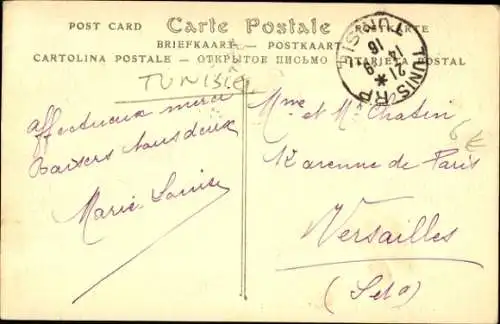 POST CARD Carte Postale POSTKARTE
BRIEFKAART POSTKAART
CARTOLINA POSTALE — ОТКРЫТОЕ ПИСЬМО TARJETA POSTAL
TUNISIE
TUNIS R.P. TUNISIE
14 16
21 9
affectueux merci
Baisers tous deux
Marie Louise
Mme et M Chatin
avenue de Paris
Versailles
6 €